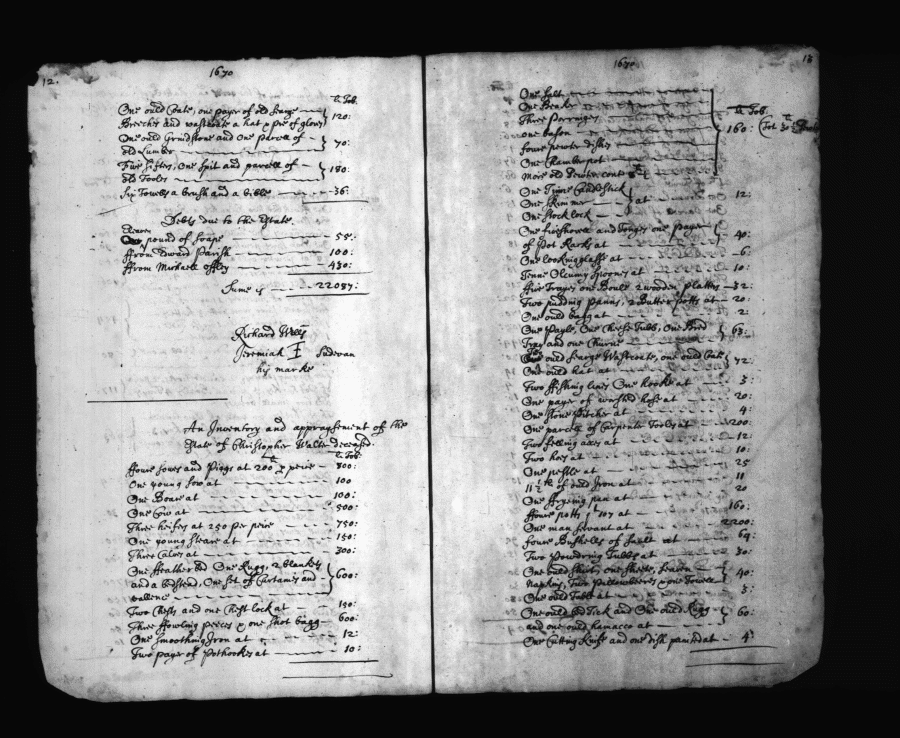 12.
1670
li Tob.
One ould Coate, one payer of old Searge
Breeches and wastcoate a hat & pre of gloves } 120:
One ould Grindstone and One parcell of
old Lumber } 70:
Five sifters, One spit and parcell of
old Tooles } 180:
Six Towells a brush and a bible 36:
Debts due to the Estate.
Eleaven pound of soape 55:
ffrom Edward Parish 100:
ffrom Michaell offley 430:
Sume is 22087:
Richard
Jeremiah I Sudevan
his marke
An Inventory and appraysement of the
Estate of Christopher Walter deceased.
li Tob:
ffoure sowes and Piggs at 200 li p peice 800:
One young sow at 100
One Boare at 100:
One Cow at 500:
Three heifers at 250 per peice 750:
One young steare at 150:
Three Calves at 300:
One ffeather bed One Rugg, 2 blankets
and a bedstead, One set of Curtaines and
vallens } 600:
Two Chests and one Chest lock at 150:
Three ffowling peeces & one shot bagg 600:
One smoothing Iron at 12:
Two payer of Pothookes at 10:
13
1670:
One Salt
One Beaker
Three Porringers
one bason
foure pewter dishes
One Chamberpot
more old Pewter cont
li Tob:
160:
One Tinne Candlestick
One skimmer } at 12:
One stock lock
One fireshovel and Tonges one payer
of Pot Racks at } 40:
One looking glasse at 6:
Tenne Alcumy spoones at 10:
ffive Trayes one Boule 2 wooden platters 32:
Two pudding panns, 2 Butter potts at 20:
One ould bag at 2:
One Payle, One Cheese Tubb, One
Tray and one Churne } 63:
One ould Searge Wastcoate, one ould Coate
One ould hat at } 72:
Two ffishing lines One hooke at 3:
One payer of worsted hose at 20:
One stone Pitcher at 4:
One parcell of Carpenters Tooles at 200:
Two felling axes at 12:
Two hoes at 10:
One pestle at 25
11 ½ li of old Iron at 11
One ffrying pan at 20
ffoure potts 107 at 160:
One man servant at 2200:
foure Bushells of Salt at 64:
Two Powdring Tubbs at 30:
One ould shirt, one sheete,
napkins, Two Pillowbeeres & one Towell } 40:
One ould Table at 5:
One ould bed Tick and One ould Rugg
and one ould hamacco at } 60:
One Cutting Knife and one dish at 4: